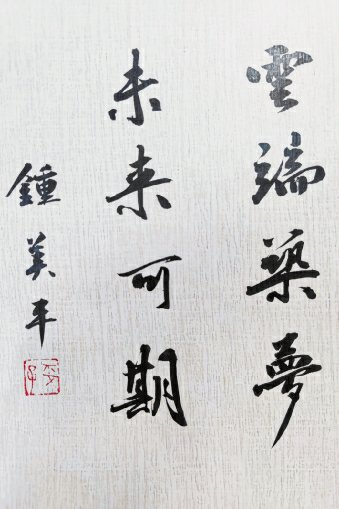 雲端築夢
未来可期
鍾美平